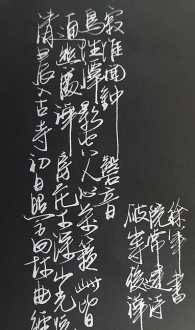 清晨入古寺初日照高林曲徑
通幽處禪房花木深山光悦
鳥性潭影空人心萬籟此皆
寂惟聞鐘磬音
破山寺後禪
院常建詩
書